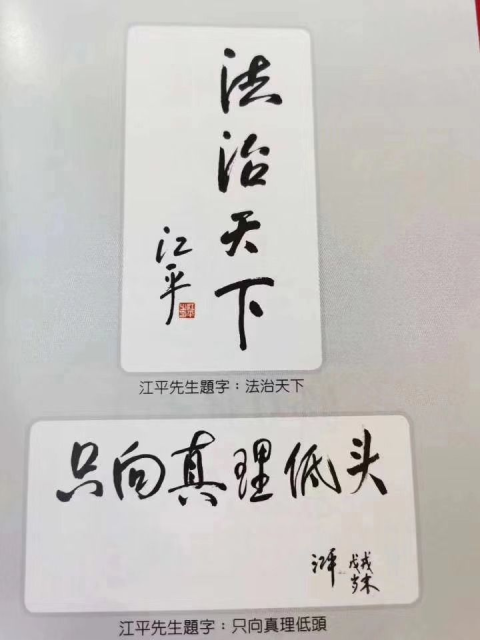 法治天下
江平
江平先生題字：法治天下
只向真理低头
江平 戊戌
岁末
江平先生題字：只向真理低頭